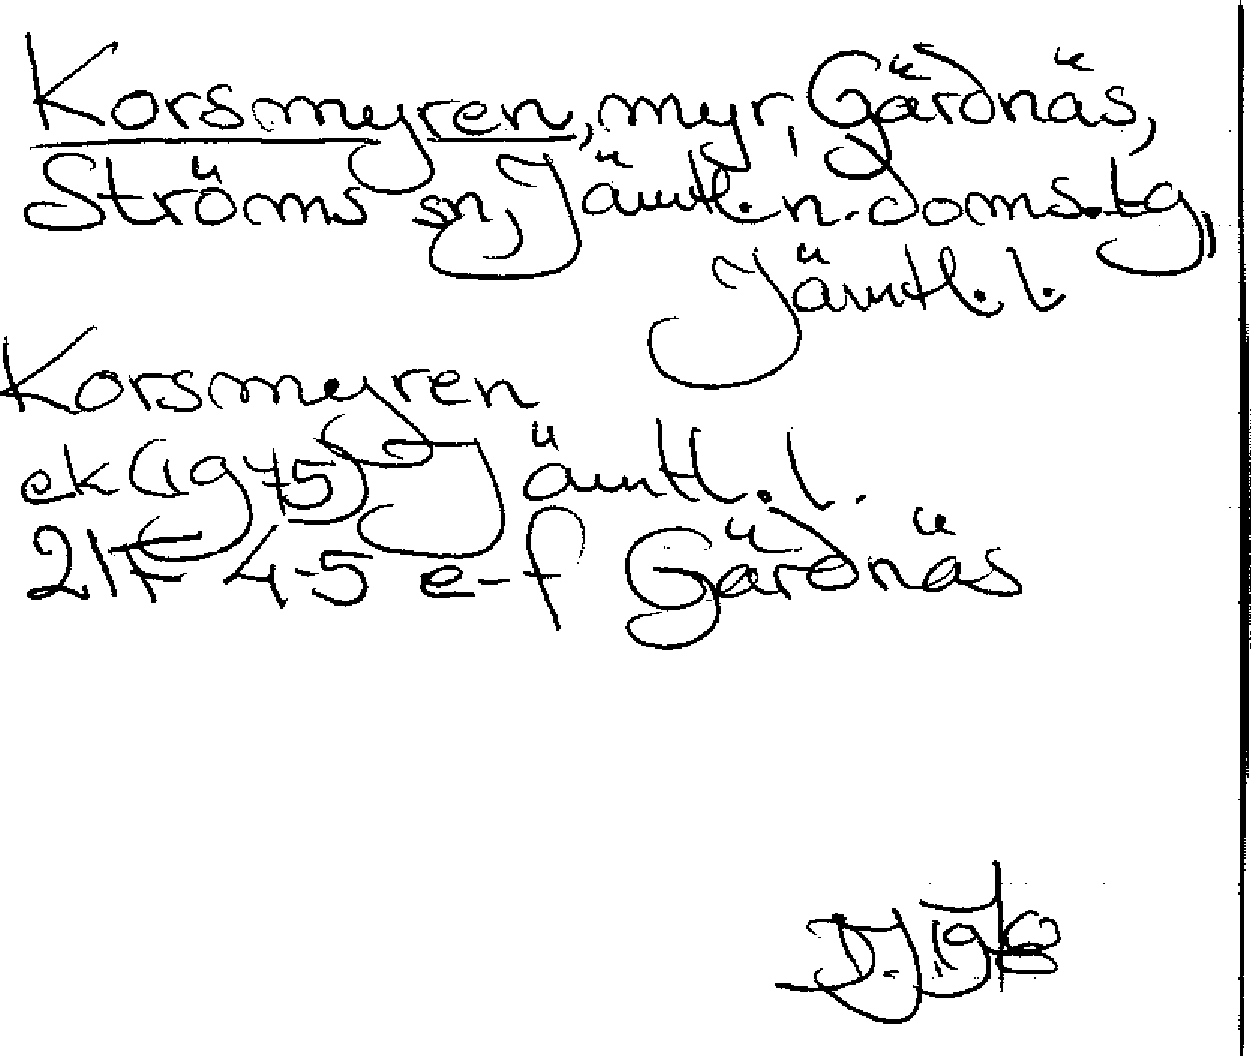 Korsmyren, myr, Gärdnäs,
Ströms sn, Jämtl. n. doms.tg,
Jämtl. l.
Korsmyren
ek (1975) Jämtl. l.
21F 4-5 e-f Gärdnäs
D.J 1978